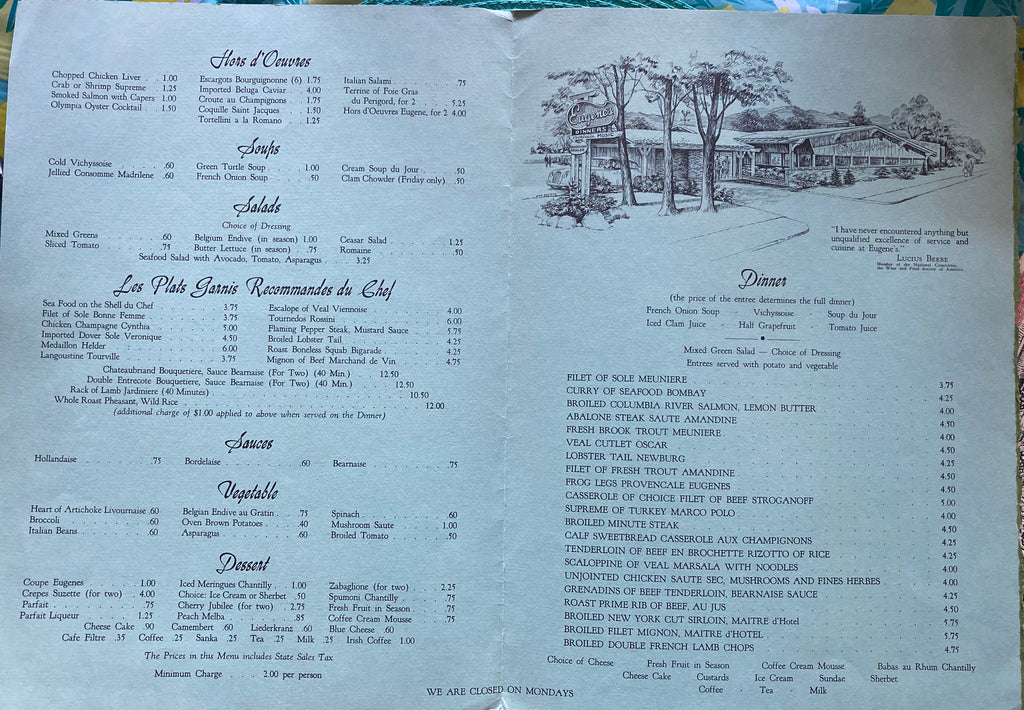 Hors d'Oeuvres
Chopped Chicken Liver . . 1.00
Crab or Shrimp Supreme . 1.25
Smoked Salmon with Capers 1.00
Olympia Oyster Cocktail . . 1.50
Escargots Bourguignonne (6) 1.75
Imported Beluga Caviar . . 4.00
Croute au Champignons . . 1.75
Coquille Saint Jacques . . 1.50
Tortellini a la Romano . . 1.25
Italian Salami . . . .75
Terrine of Foie Gras
du Perigord, for 2 . . 5.25
Hors d'Oeuvres Eugene, for 2 4.00
Soups
Cold Vichyssoise . . . . .60
Jellied Consomme Madrilene .60
Green Turtle Soup . . . . 1.00
French Onion Soup . . . .50
Cream Soup du Jour . . . .50
Clam Chowder (Friday only) .50
Salads
Choice of Dressing
Mixed Greens . . . . .60
Sliced Tomato . . . . .75
Belgium Endive (in season) 1.00
Butter Lettuce (in season) . .75
Ceasar Salad . . . . 1.25
Romaine . . . . .50
Seafood Salad with Avocado, Tomato, Asparagus . . . 3.25
Les Plats Garnis Recommandes du Chef
Sea Food on the Shell du Chef . . . . 3.75
Filet of Sole Bonne Femme . . . . 3.75
Chicken Champagne Cynthia . . . . 5.00
Imported Dover Sole Veronique . . . . 4.50
Medaillon Helder . . . . 6.00
Langoustine Tourville . . . . 3.75
Escalope of Veal Viennoise . . . . 4.00
Tournedos Rossini . . . . 6.00
Flaming Pepper Steak, Mustard Sauce . . . . 5.75
Broiled Lobster Tail . . . . 4.25
Roast Boneless Squab Bigarade . . . . 4.25
Mignon of Beef Marchand de Vin . . . . 4.75
Chateaubriand Bouquetiere, Sauce Bearnaise (For Two) (40 Min.) . . . 12.50
Double Entrecote Bouquetiere, Sauce Bearnaise (For Two) (40 Min.) . . . 12.50
Rack of Lamb Jardiniere (40 Minutes) . . . . 10.50
Whole Roast Pheasant, Wild Rice . . . . 12.00
(additional charge of $1.00 applied to above when served on the Dinner)
Sauces
Hollandaise . . . . .75
Bordelaise . . . . .60
Bearnaise . . . . .75
Vegetable
Heart of Artichoke Livournaise .60
Broccoli . . . . .60
Italian Beans . . . . .60
Belgian Endive au Gratin . . .75
Oven Brown Potatoes . . . .40
Asparagus . . . . .60
Spinach . . . . .60
Mushroom Saute . . . 1.00
Broiled Tomato . . . .50
Dessert
Coupe Eugenes . . . . 1.00
Crepes Suzette (for two) . 4.00
Parfait . . . . .75
Parfait Liqueur . . . . 1.25
Iced Meringues Chantilly . . 1.00
Choice: Ice Cream or Sherbet .50
Cherry Jubilee (for two) . 2.75
Peach Melba . . . . .85
Zabaglione (for two) . . . 2.25
Spumoni Chantilly . . . . .75
Fresh Fruit in Season . . . .75
Coffee Cream Mousse . . . .75
Cheese Cake .90 Camembert .60 Liederkranz .60 Blue Cheese .60
Cafe Filtre .35 Coffee .25 Sanka .25 Tea .25 Milk .25 Irish Coffee 1.00
The Prices in this Menu includes State Sales Tax
Minimum Charge . . . . 2.00 per person
WE ARE CLOSED ON MONDAYS
Eugene's
DINNERS
"I have never encountered anything but
unqualified excellence of service and
cuisine at Eugene's."
LUCIUS BEEBE
Member of the National Committee,
the Wine and Food Society of America.
Dinner
(the price of the entree determines the full dinner)
French Onion Soup - Vichyssoise - Soup du Jour
Iced Clam Juice - Half Grapefruit - Tomato Juice
Mixed Green Salad — Choice of Dressing
Entrees served with potato and vegetable
FILET OF SOLE MEUNIERE . . . . 3.75
CURRY OF SEAFOOD BOMBAY . . . . 4.25
BROILED COLUMBIA RIVER SALMON, LEMON BUTTER . . . . 4.00
ABALONE STEAK SAUTE AMANDINE . . . . 4.50
FRESH BROOK TROUT MEUNIERE . . . . 4.00
VEAL CUTLET OSCAR . . . . 4.50
LOBSTER TAIL NEWBURG . . . . 4.25
FILET OF FRESH TROUT AMANDINE . . . . 4.50
FROG LEGS PROVENCALE EUGENES . . . . 4.50
CASSEROLE OF CHOICE FILET OF BEEF STROGANOFF . . . . 5.00
SUPREME OF TURKEY MARCO POLO . . . . 4.00
BROILED MINUTE STEAK . . . . 4.50
CALF SWEETBREAD CASSEROLE AUX CHAMPIGNONS . . . . 4.25
TENDERLOIN OF BEEF EN BROCHETTE RIZOTTO OF RICE . . . . 4.25
SCALOPPINE OF VEAL MARSALA WITH NOODLES . . . . 4.00
UNJOINTED CHICKEN SAUTE SEC, MUSHROOMS AND FINES HERBES . . . . 4.00
GRENADINS OF BEEF TENDERLOIN, BEARNAISE SAUCE . . . . 4.25
ROAST PRIME RIB OF BEEF, AU JUS . . . . 4.50
BROILED NEW YORK CUT SIRLOIN, MAITRE d'Hotel . . . . 5.75
BROILED FILET MIGNON, MAITRE d'HOTEL . . . . 5.75
BROILED DOUBLE FRENCH LAMB CHOPS . . . . 4.75
Choice of Cheese Fresh Fruit in Season Coffee Cream Mousse Babas au Rhum Chantilly
Cheese Cake Custards Ice Cream Sundae Sherbet
Coffee - Tea - Milk